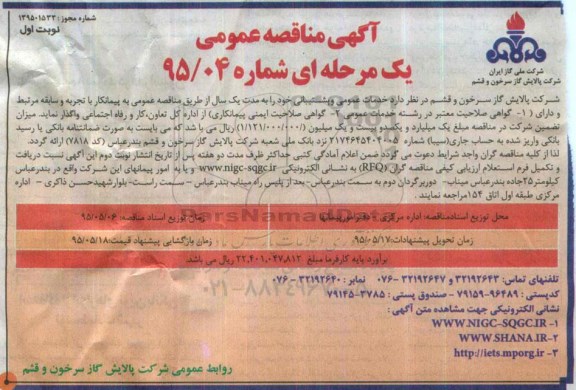 شماره مجوز: ۱۳۹۵۰۱۵۳۳
نوبت اول
آگهی مناقصه عمومی
یک مرحله ای شماره ۹۵/۰۴
شرکت ملی گاز ایران
شرکت پالایش گاز سرخون و قشم
شرکت پالایش گاز سرخون و قشم در نظر دارد خدمات عمومی و پشتیبانی خود را به مدت یک سال از طریق مناقصه عمومی به پیمانکار با تجربه و سابقه مرتبط
و دارای (۱- گواهی صلاحیت معتبر در رشته خدمات عمومی ۲- گواهی صلاحیت ایمنی پیمانکاری) از اداره کل تعاون، کار و رفاه اجتماعی واگذار نماید. میزان
تضمین شرکت در مناقصه مبلغ یک میلیارد و یکصد و بیست و یک میلیون (۱/۱۲۱/۰۰۰/۰۰۰) ریال می باشد که می بایست به صورت ضمانتنامه بانکی یا رسید
بانکی واریز شده به حساب جاری(سیبا) شماره ۲۱۷۴۶۴۵۴۰۴۰۰۵ نزد بانک ملی شعبه شرکت پالایش گاز سرخون و قشم بندرعباس (کد ۷۸۱۸) ارائه گردد.
لذا از کلیه مناقصه گران واجد شرایط دعوت می گردد ضمن اعلام آمادگی کتبی حداکثر ظرف مدت دو هفته پس از تاریخ انتشار نوبت دوم این آگهی نسبت دریافت
و تکمیل فرم استعلام ارزیابی کیفی مناقصه گران (RFQ) به نشانی الکترونیکی www.nigc-sqgc.ir و یا به امور پیمانهای این شرکت واقع در بندرعباس
کیلومتر۲۵جاده بندرعباس میناب- دوربرگردان دوم به سمت بندرعباس- بعد از پلیس راه میناب بندرعباس - سمت راست- بلوارشهیدحسن ذاکری - اداره
مرکزی طبقه اول اتاق ۱۵۴مراجعه نمایند.
محل توزیع اسنادمناقصه: اداره مرکزی - دفترامورپیمانها
زمان توزیع اسناد مناقصه: ۹۵/۰۵/۰۶
زمان تحویل پیشنهادات: ۹۵/۰۵/۱۷
زمان بازگشایی پیشنهاد قیمت: ۹۵/۰۵/۱۸
برآورد پایه کارفرما مبلغ ۲۲,۴۰۱,۰۴۷,۸۱۲ ریال می باشد.
تلفنهای تماس: ۳۲۱۹۲۶۴۳ و ۳۲۱۹۲۶۴۷ -۰۷۶ نمابر: ۳۲۱۹۲۶۴۰ -۰۷۶
کدپستی: ۹۶۴۸۹-۷۹۱۵۹ - صندوق پستی: ۳۷۸۵-۷۹۱۴۵
نشانی الکترونیکی جهت مشاهده متن آگهی:
۱- WWW.NIGC-SQGC.IR
۲- WWW.SHANA.IR
۳- http://iets.mporg.ir
روابط عمومی شرکت پالایش گاز سرخون و قشم